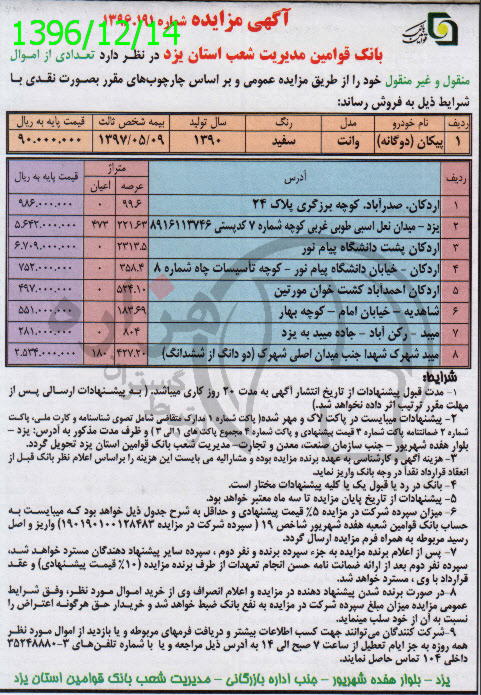 1396/12/14
آگهی مزایده شماره ۱۳۹۶.۱۹۱
بانک قوامین مدیریت شعب استان یزد در نظر دارد تعدادی از اموال
منقول و غیر منقول خود را از طریق مزایده عمومی و بر اساس چارچوب‌های مقرر بصورت نقدی با
شرایط ذیل به فروش رساند:
ردیف نام خودرو مدل رنگ سال تولید بیمه شخص ثالث قیمت پایه به ریال
۱ پیکان (دوگانه) وانت سفید ۱۳۹۰ ۱۳۹۷/۰۵/۰۹ ۹۰.۰۰۰.۰۰۰
ردیف آدرس متراژ عرصه اعیان قیمت پایه به ریال
۱ اردکان، صدرآباد، کوچه برزگری پلاک ۲۴ ۹۹.۶ ۰ ۹۸۶.۰۰۰.۰۰۰
۲ یزد - میدان نعل اسبی طوبی غربی کوچه شماره ۷ کدپستی ۸۹۱۶۱۱۳۷۴۶ ۲۲۱.۶۳ ۴۷۳ ۵.۶۴۲.۰۰۰.۰۰۰
۳ اردکان پشت دانشگاه پیام نور ۲۳۱۳.۵ ۰ ۶.۷۰۹.۰۰۰.۰۰۰
۴ اردکان - خیابان دانشگاه پیام نور - کوچه تأسیسات چاه شماره ۸ ۳۵۸.۴ ۰ ۷۵۲.۰۰۰.۰۰۰
۵ اردکان احمدآباد کشت خوان مورتین ۵۲۴.۱۰ ۰ ۴۹۷.۰۰۰.۰۰۰
۶ شاهدیه - خیابان امام - کوچه بهار ۱۸۳.۶۹ ۰ ۵۵۱.۰۰۰.۰۰۰
۷ میبد - رکن آباد - جاده میبد به یزد ۸۰۴ ۰ ۲۸۱.۰۰۰.۰۰۰
۸ میبد شهرک شهدا جنب میدان اصلی شهرک (دو دانگ از ششدانگ) ۴۲۷.۲۰ ۱۸۰ ۲.۵۳۴.۰۰۰.۰۰۰
شرایط:
۱- مدت قبول پیشنهادات از تاریخ انتشار آگهی به مدت ۲۰ روز کاری میباشد. ( به پیشنهادات ارسالی پس از
مهلت مقرر ترتیب اثر داده نخواهد شد.)
۲- پیشنهادات میبایست در پاکت لاک و مهر شده( پاکت شماره ۱ مدارک متقاضی شامل تصویر شناسنامه و کارت ملی، پاکت
شماره ۲ ضمانتنامه پاکت شماره ۳ قیمت پیشنهادی و پاکت شماره ۴ مجموع پاکت های ۱ الی ۳ ) و ظرف مدت مذکور به آدرس: یزد -
بلوار هفده شهریور - جنب سازمان صنعت، معدن و تجارت- مدیریت شعب بانک قوامین استان یزد تحویل گردد.
۳- هزینه آگهی و کارشناسی به عهده برنده مزایده بوده و مشارالیه می بایست این هزینه را براساس اعلام نظر بانک قبل از
انعقاد قرارداد نقداً در وجه بانک واریز نماید.
۴- بانک در رد یا قبول یک یا کلیه پیشنهادات مختار است.
۵- پیشنهادات از تاریخ پایان مزایده تا سه ماه معتبر خواهد بود.
۶- میزان سپرده شرکت در مزایده ۵% قیمت پیشنهادی و حداقل به شرح جدول ذیل خواهد بود که میبایست به
حساب بانک قوامین شعبه هفده شهریور شاخص ۱۹ ( سپرده شرکت در مزایده ۱۹۰۱۹۰۱۰۰۱۲۸۴۸۳) واریز و اصل
رسید مربوطه به همراه فرم مزایده ارسال گردد.
۷- پس از اعلام برنده مزایده به جزء سپرده برنده و نفر دوم ، سپرده سایر پیشنهاد دهندگان مسترد خواهد شد،
سپرده نفر دوم بعد از ارائه ضمانت نامه حسن انجام تعهدات از طرف برنده مزایده (۱۰% قیمت پیشنهادی) و عقد
قرارداد با وی ، مسترد خواهد شد.
۸- در صورت برنده شدن پیشنهاد دهنده در مزایده و اعلام انصراف وی از خرید اموال مورد نظر، وفق شرایط
عمومی مزایده میزان مبلغ سپرده شرکت در مزایده به نفع بانک ضبط خواهد شد و خریدار حق هرگونه اعتراض را
نسبت به آن از خود سلب مینماید.
۹- شرکت کنندگان می‌توانند جهت کسب اطلاعات بیشتر و دریافت فرمهای مربوطه و یا بازدید از اموال مورد نظر
همه روزه به جز ایام تعطیل از ساعت ۷ صبح الی ۱۴ به آدرس ذیل مراجعه و یا با شماره تلفن‌های ۳-۳۵۲۴۸۸۸۰
داخلی ۱۰۴ تماس حاصل نمایند.
یزد - بلوار هفده شهریور - جنب اداره بازرگانی - مدیریت شعب بانک قوامین استان یزد